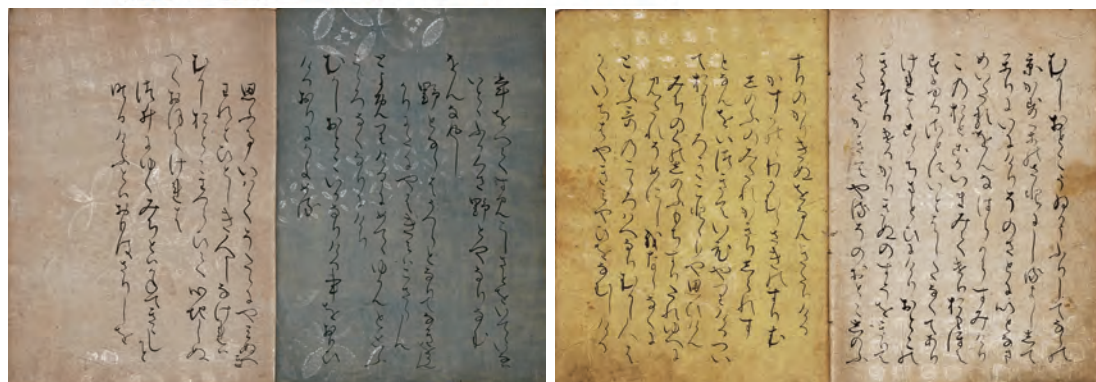 むかしおとこうゐかうふりしてならの
京かすかのさとにしるよしゝて
かりにいにけりそのさとにいとなま
めいたるをんなはらからすみけり
このおとこかいまみてけりおもほえ
すふるさとにいとはしたなくてあり
けれは心ちまとひにけりおとこの
きたりけるかりきぬのすそをきりて
うたをかきてやるそのおとこしのふ
すりのかりきぬをなんきたりける
かすかのゝわかむらさきのすり衣
しのふのみたれかきりしられす
となんをいつきていひやりけるつい
ておもしろきことゝもや思けん
みちのくのしのふもちすりたれゆへに
みたれそめにし我ならなくに
といふ哥のこゝろはへなりむかし人は
かくいちはやきみやひをなむしける
年をへてすみこしさとをいてゝいなは
いとゝふかくさ野とやなりなむ
をんなかへし
野とならはうつらとなりてなきをらん
かりにたにやはきみはこさらん
とよめりけるにめてゝゆかんとおもふ
こゝろなくなりにけり
むかしおとこいかなりける事を思ひ
けるおりにかよめる
思ふこといはてそたゝにやみぬへき
われとひとしき人しなけれは
むかしおとこわつらひて心地しぬ
へくおほえけれは
つゐにゆくみちとはかねてきゝしかと
昨日けふとはおもはさりしを